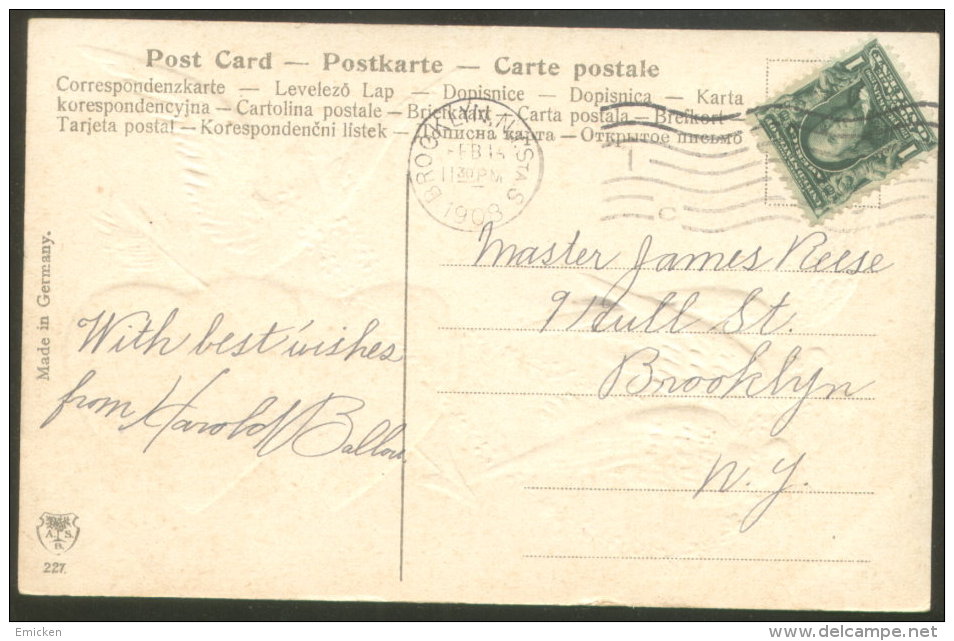 Post Card — Postkarte — Carte postale
Correspondenzkarte — Levelező Lap — Dopisnice — Dopisnica — Karta
korespondencyjna — Cartolina postale — Briefkaart — Carta postala — Brefkort
Tarjeta postal — Korespondenčni listek — Дописна карта — Открытое письмо
BROOKLYN, N.Y. STA S
FEB 14
11 30 PM
1908
1 1
Master James Reese
9 Hull St.
Brooklyn
N. Y.
With best wishes
from Harold Ballou
Made in Germany.
A. S.
B.
227.
Emicken
www.delcampe.net